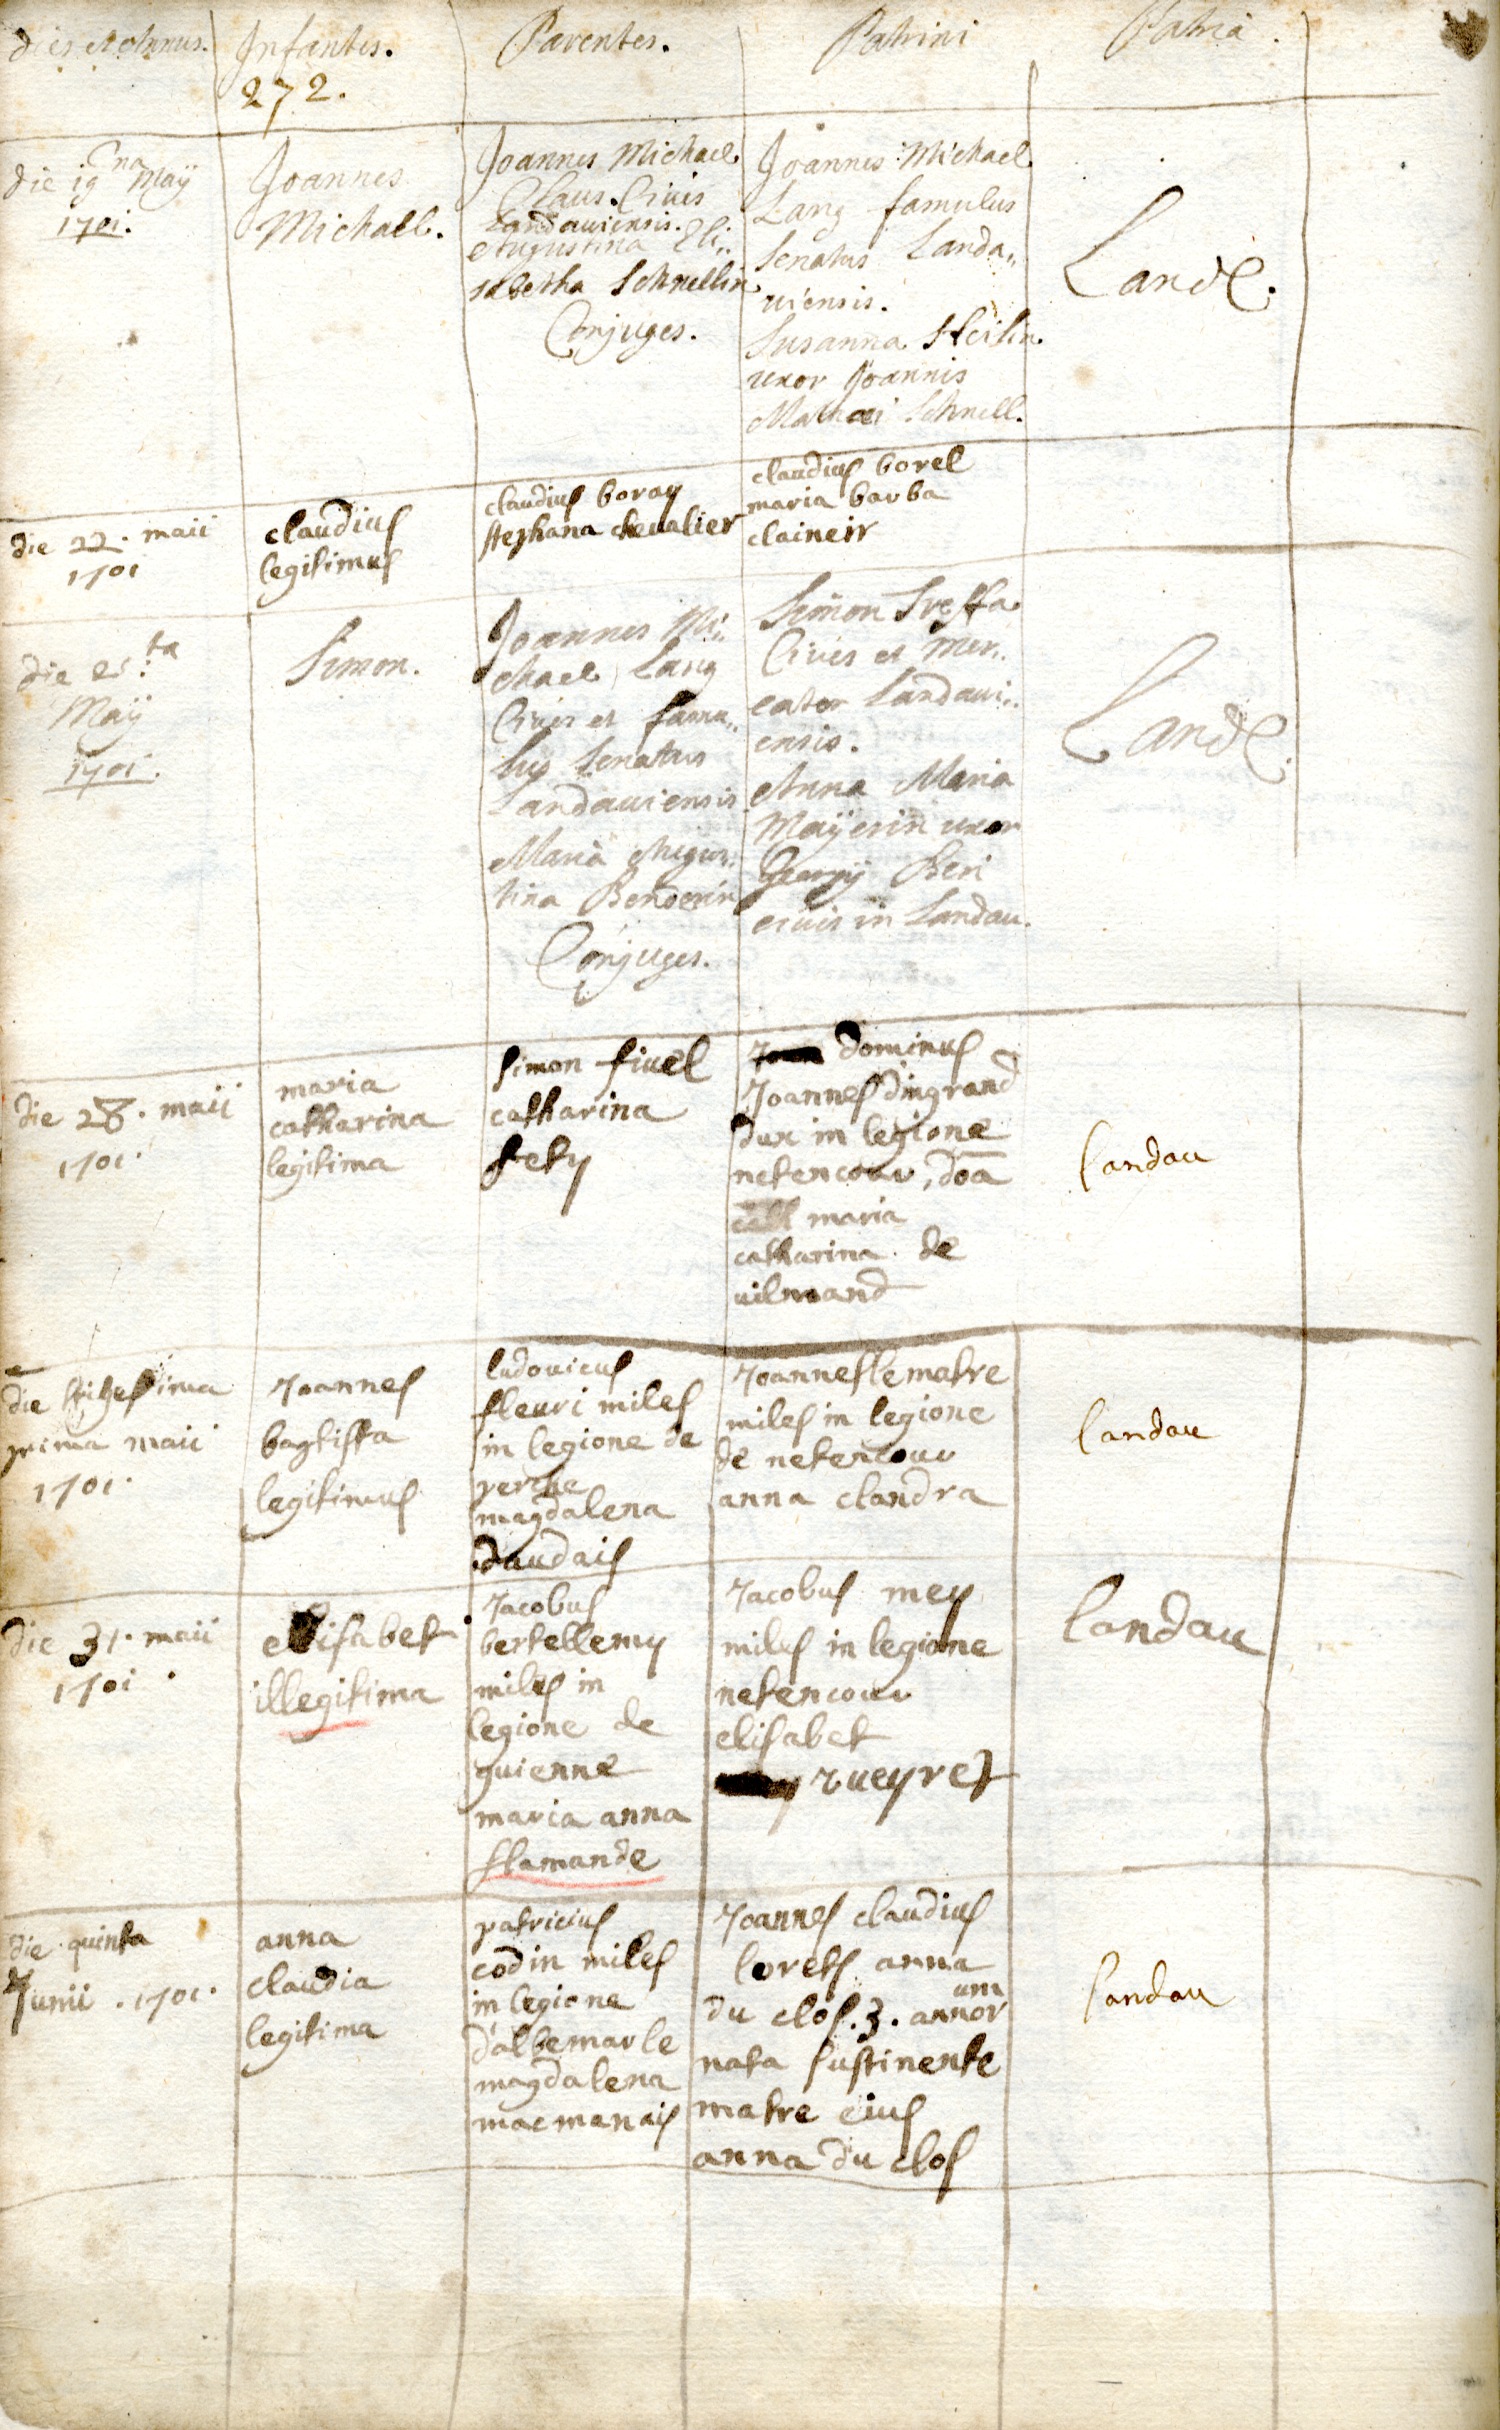 dies et Annus.
Infantes.
272.
Parentes.
Patrini
Patria.
die 19na Maÿ
1701.
Joannes
Michael.
Joannes Michael
Claus. Civis
Landaviensis.
Augustina Eli„
sabetha Schnellin
Conjuges.
Joannes Michael
Lang famulus
Senatus Landa„
uiensis.
Susanna Heilin
uxor Joannis
Mathæi Schnell.
Land.
die 22. maii
1701
claudius
legitimus
claudius boray
stephana cheualier
claudius borel
maria barba
claineir
die ta
Maÿ
1701.
Simon.
Joannes Mi„
chael Lang
Civis et famu„
lus Senatus
Landauiensis
Maria Augus„
tina Benderin
Conjuges.
Simon Treffa
Civis et Mer„
cator Landaui„
ensis.
Anna Maria
Maÿerin uxor
Georgij Beri
civis in Landau.
Land.
die 28. maii
1701.
maria
catharina
legitima
simon fiuel
catharina
fety
dominus
Joannes dingrand
dux in legione
netencour, doa
maria
catharina de
uilmand
landau
die trigesima
prima maii
1701.
Joannes
baptista
legitimus
ludouicus
fleuri miles
in legione de
perche
magdalena
daudais
Joannes lematre
miles in legione
de netencour
anna clandra
landau
die 31. maii
1701.
elisabet
illegitima
Jacobus
bertellemy
miles in
legione de
guienne
maria anna
flamande
Jacobus mey
miles in legione
netencour
elisabet
rueyret
landau
die quinta
Junii. 1701.
anna
claudia
legitima
patricius
codin miles
in legione
d'albemarle
magdalena
macmanais
Joannes claudius
lorets anna
du clos. 3. annorum
nata sustinente
matre eius
anna du clos
landau